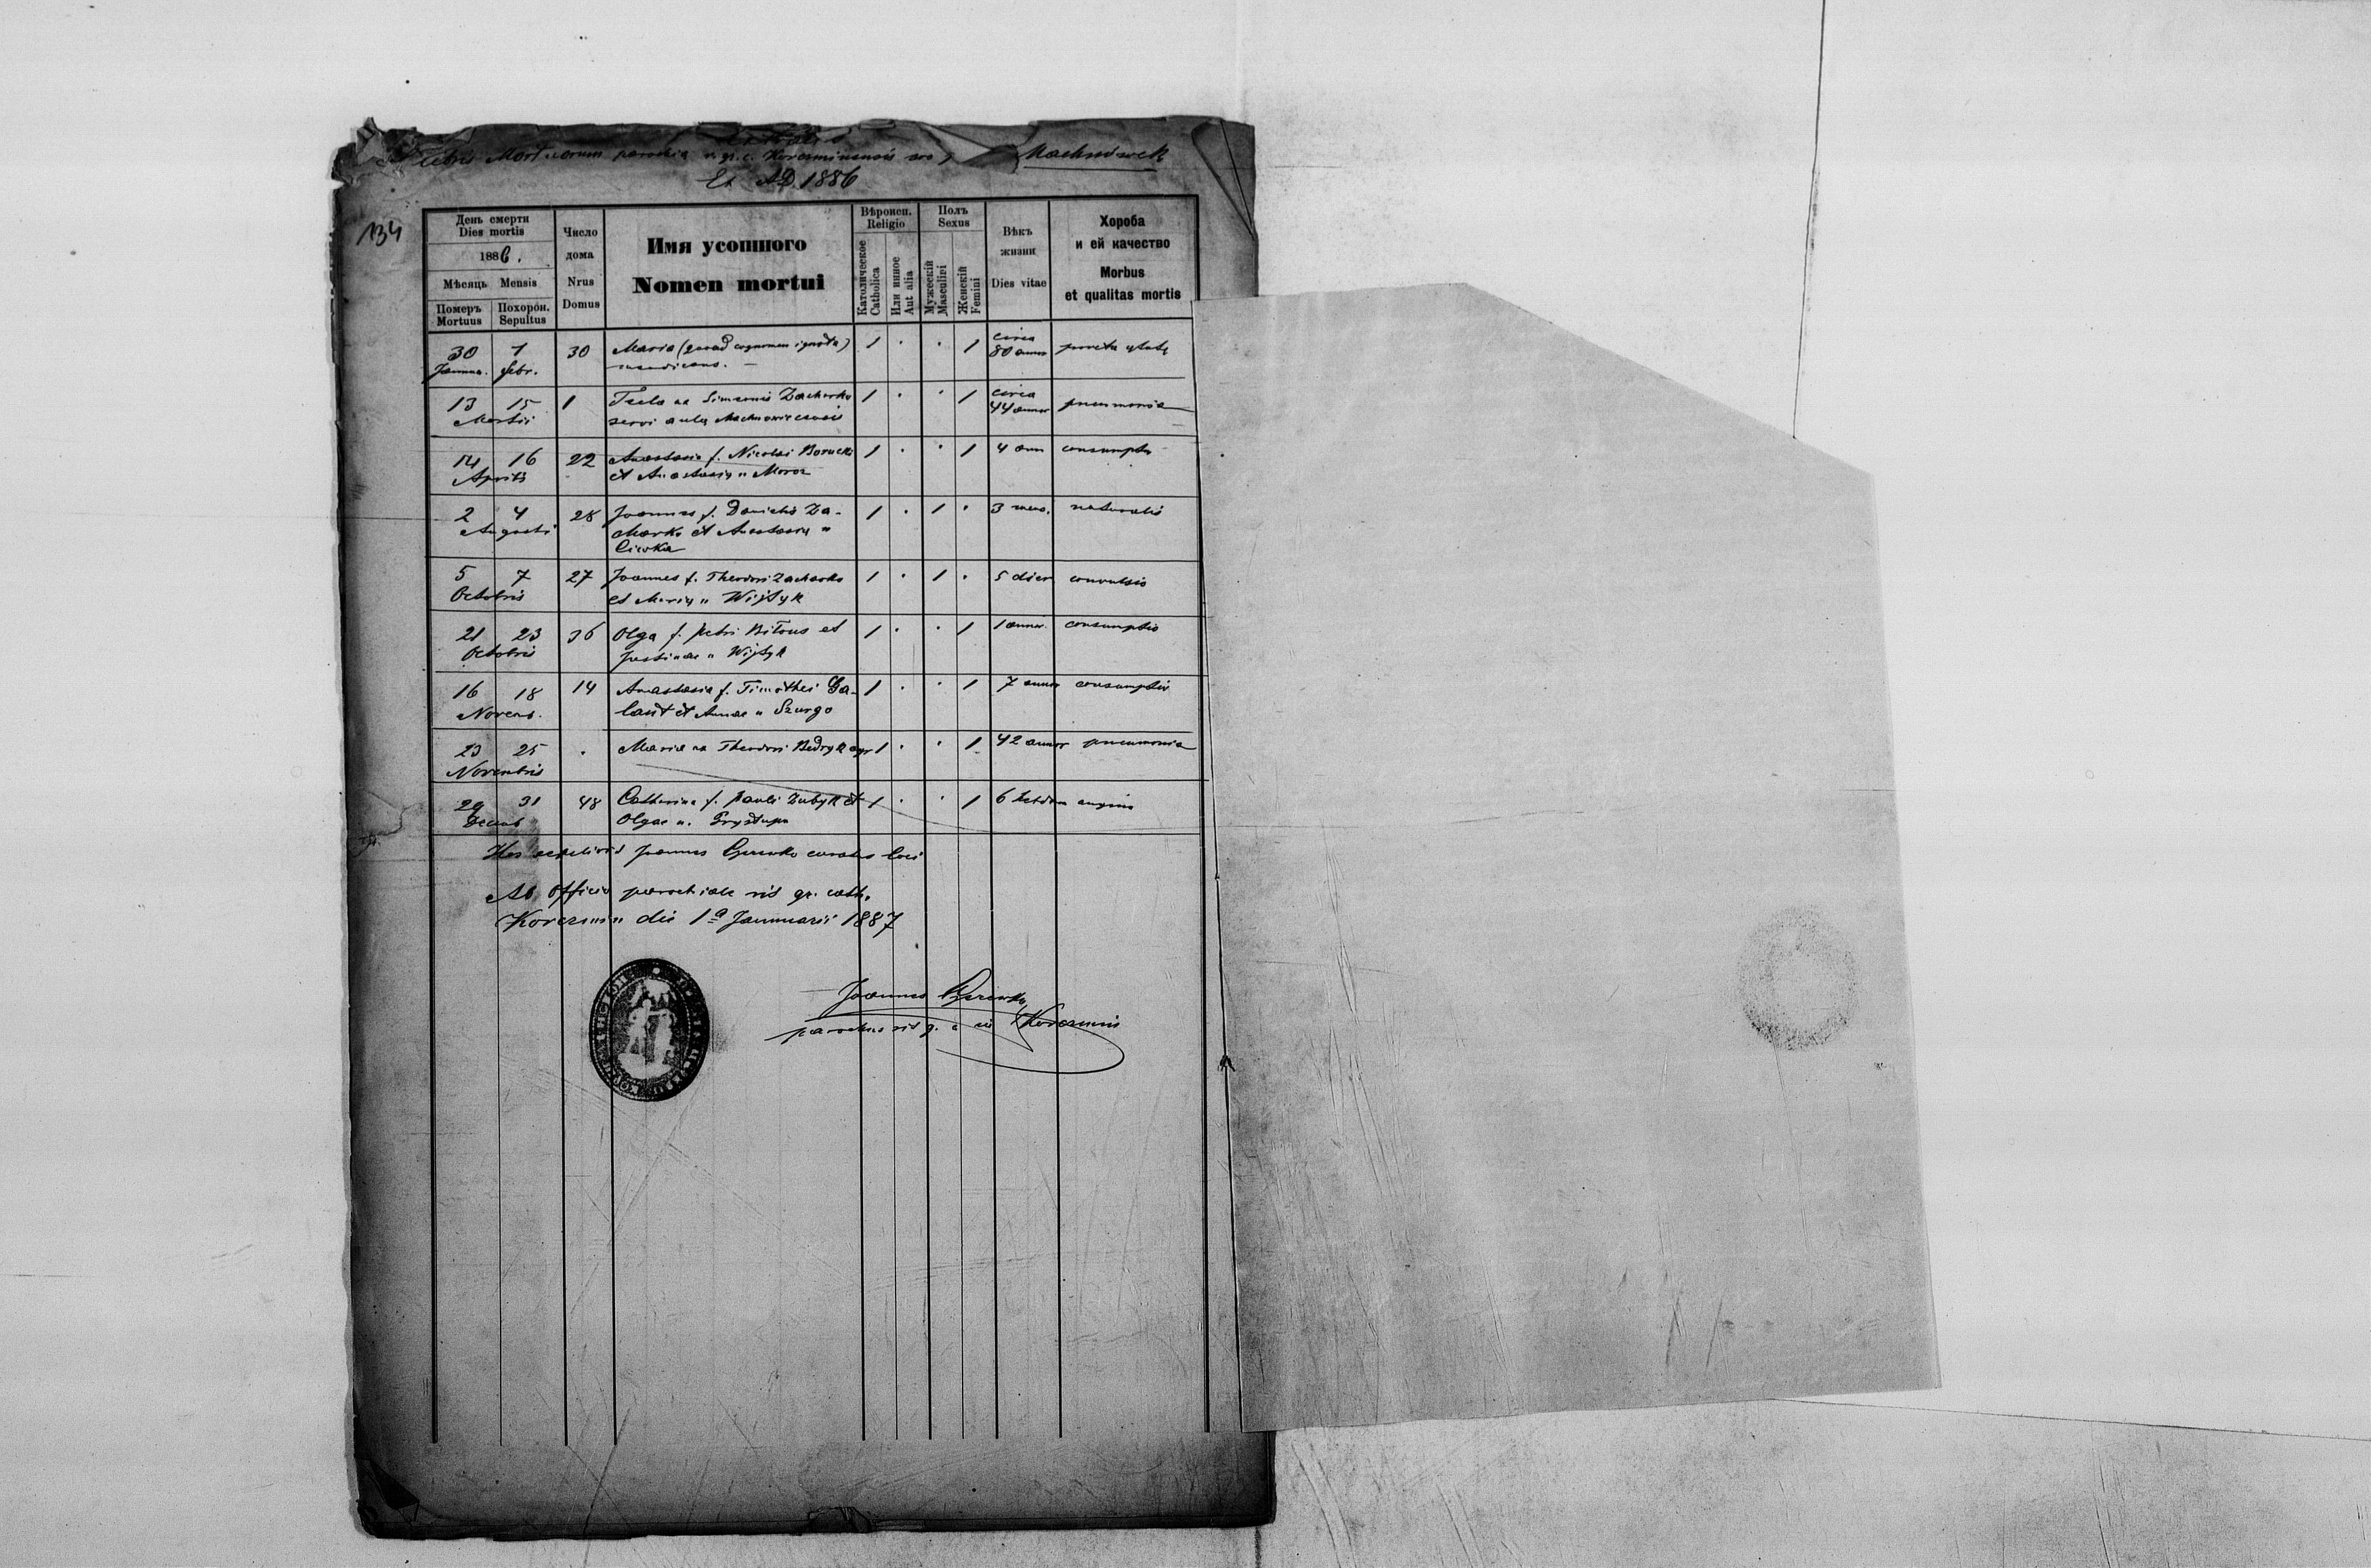 Libris Mortuorum parochia r. gr. c. Korczminensis pro Machnówek
Ex AD 1886
134
День смерти
Dies mortis
1886.
Мѣсяць Mensis
Померъ Mortuus
Похорон. Sepultus
Число дома
Nrus Domus
Имя усопшого
Nomen mortui
Вѣроисп.
Religio
Католическое
Catholica
Или инное
Aut alia
Полъ
Sexus
Мужескій
Masculini
Женскій
Femini
Вѣкъ жизни
Dies vitae
Хороба
и ей качество
Morbus
et qualitas mortis
30 1 30 Maria (quoad cognomen ignota) 1 . . 1 circa 80 annor
Januar. febr.
13 15 1 Tecla ux Simeonis Zacharko 1 . . 1 circa 44 annor pneumonia
Martii servi aulae Machnowiecensis
14 16 22 Anastasia f. Nicolai Borucki 1 . . 1 4 ann consumptio
Aprilis et Anastasiae n Moroz
2 4 28 Joannes f. Danielis Za- 1 . 1 . 3 mens. naturalis
Augusti charko et Anastasiae n
5 7 27 Joannes f. Theodori Zacharko 1 . 1 . 5 dier convulsio
Octobris et Mariae n Wijtyk
21 23 36 Olga f. Petri Biłous et 1 . . 1 1 annor. consumptio
Octobris Justinae n Wijtyk
16 18 14 Anastasia f. Timothei Ga- 1 . . 1 7 annor consumptio
Novemb. lant et Annae n Szurgo
23 25 . Maria ux Theodori Bedryk agr 1 . . 1 42 annor pneumonia
Novembris
29 31 48 Catharina f. Pauli Zubyk et 1 . . 1 6 hebdom angina
Decemb Olgae n. Prystupa
Hos sepelivit Joannes curatus loci
Ab officio parochiale rit gr. cath.
Korczmin die 1a Januarii 1887
Joannes
parochus rit g. c in Korczmin